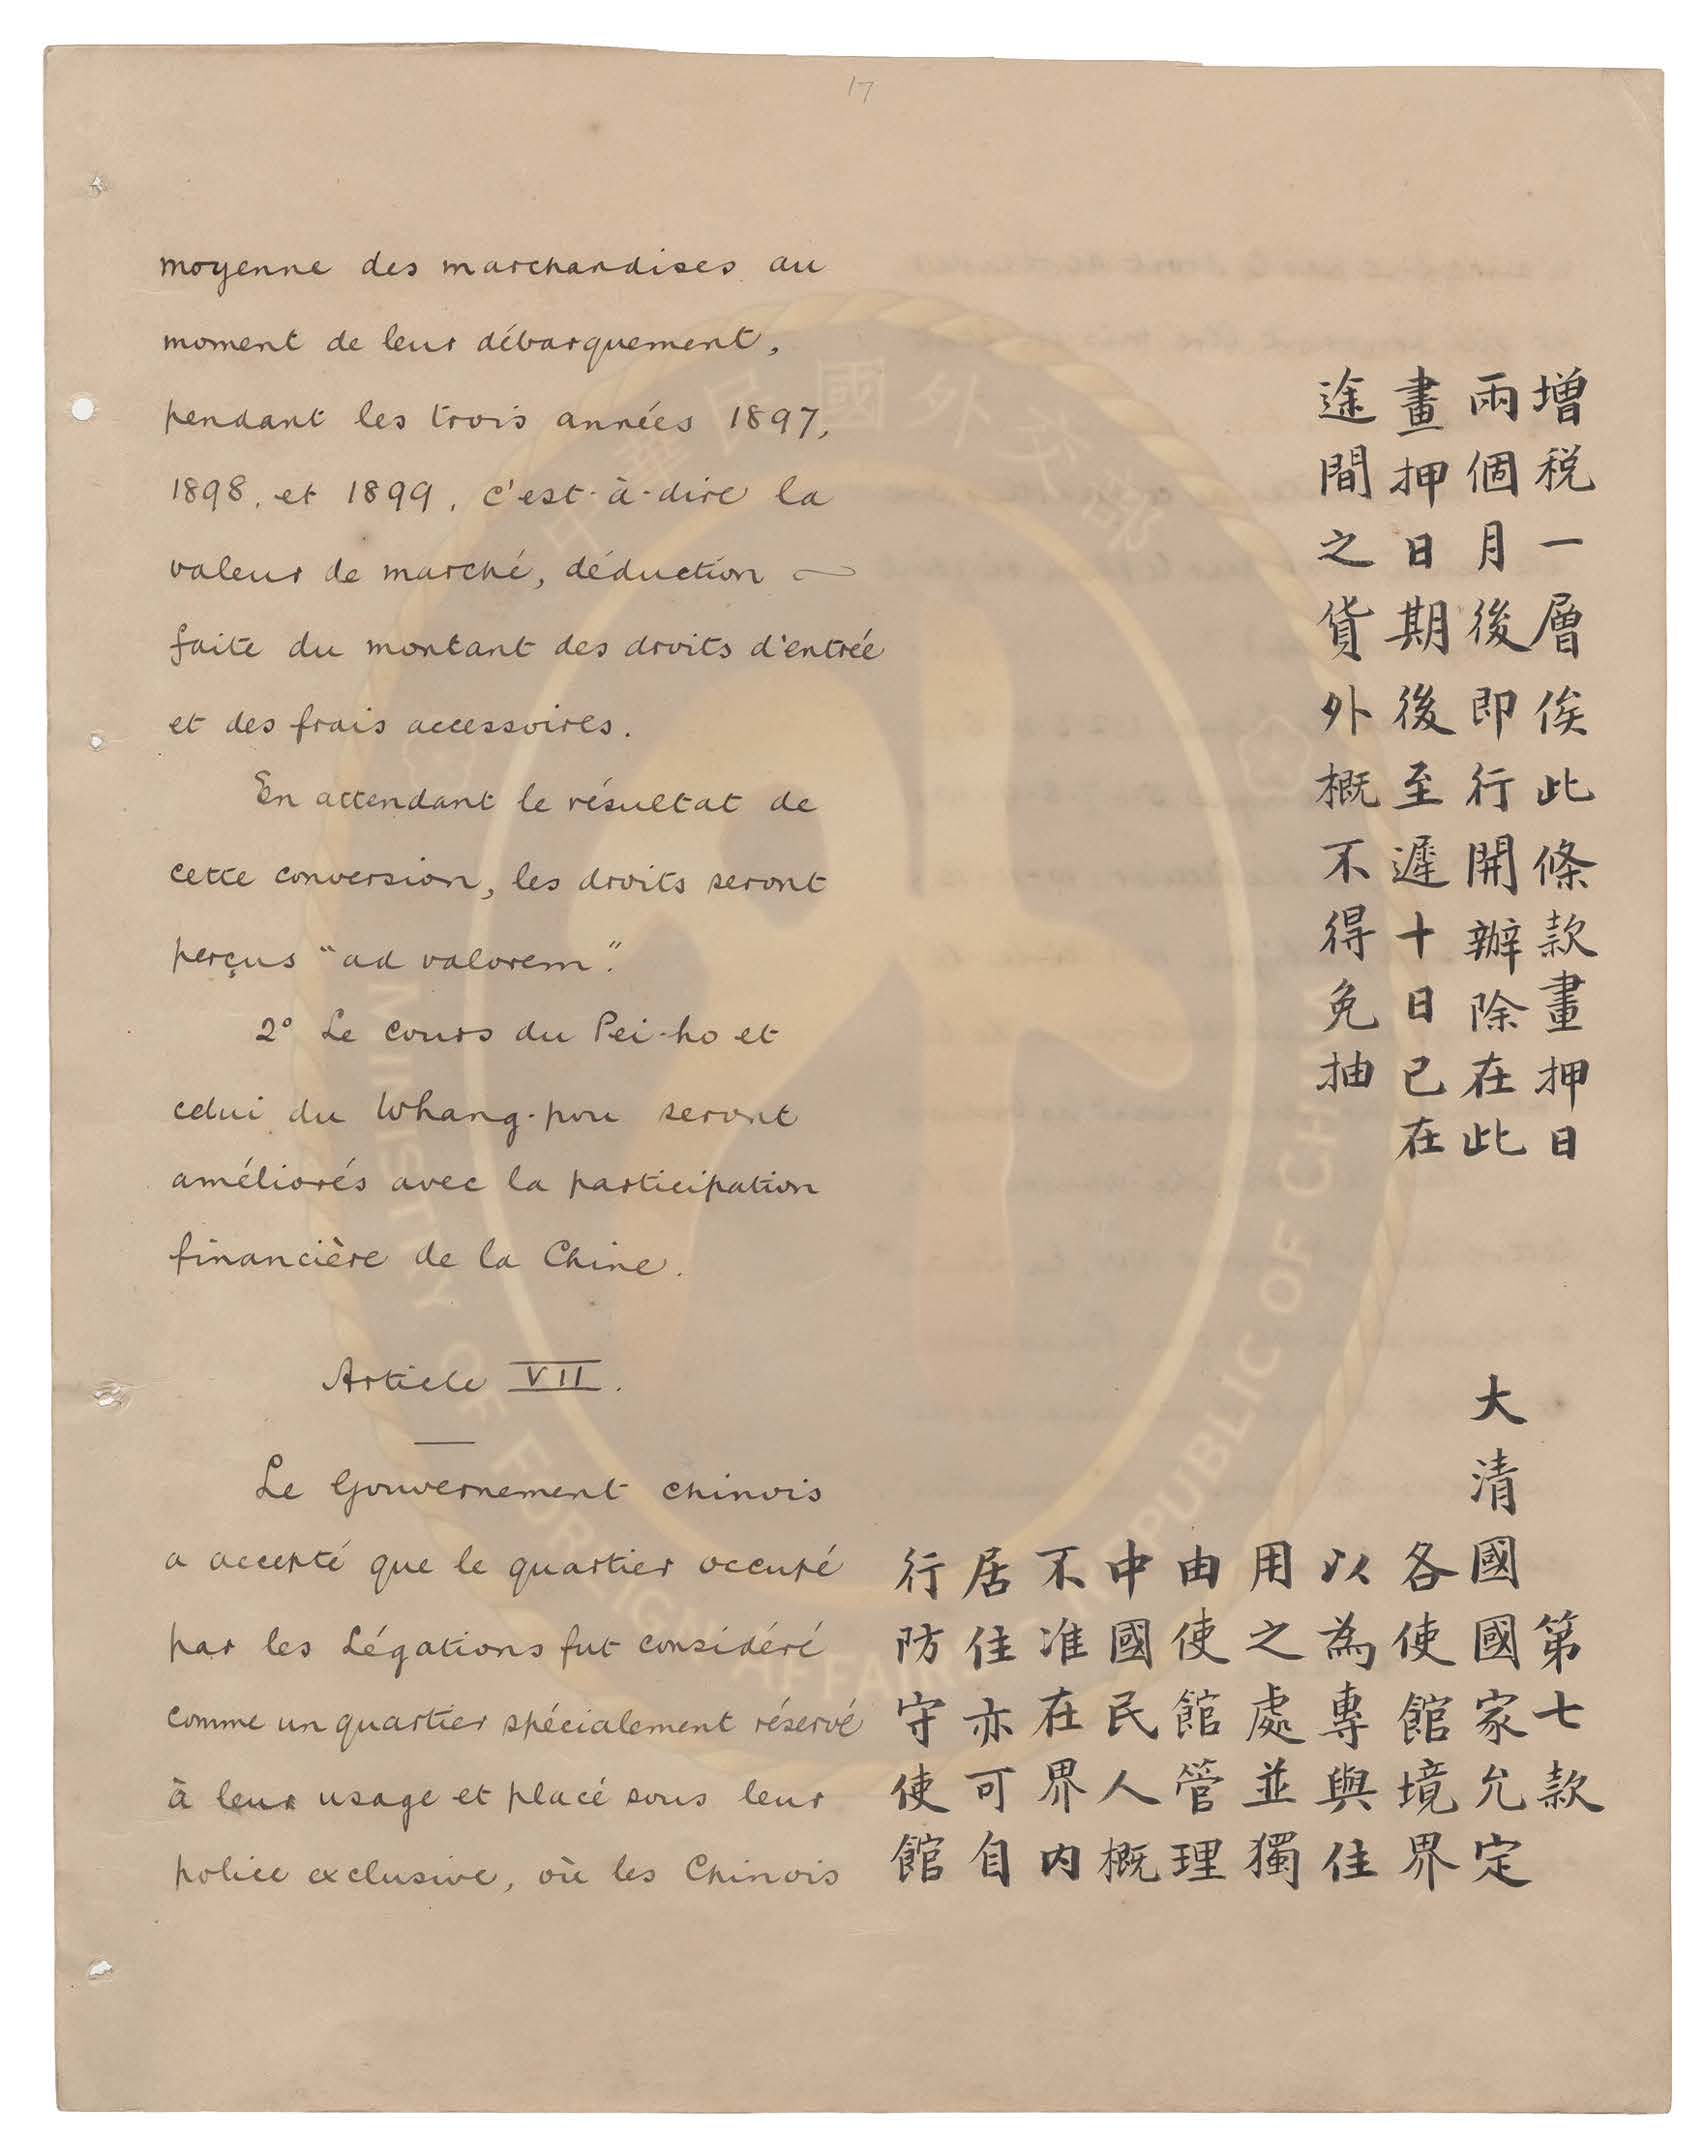 17
moyenne des marchandises au
moment de leur débarquement,
pendant les trois années 1897,
1898, et 1899, c'est-à-dire la
valeur de marché, déduction
faite du montant des droits d'entrée
et des frais accessoires.
En attendant le résultat de
cette conversion, les droits seront
perçus "ad valorem".
2° Le cours du Pei-ho et
celui du Whang-pou seront
améliorés avec la participation
financière de la Chine.
Article VII.
Le Gouvernement chinois
a accepté que le quartier occupé
par les Légations fut considéré
comme un quartier spécialement réservé
à leur usage et placé sous leur
police exclusive, où les Chinois
增税一層俟此條款畫押日
兩個月後即行開辦除在此
畫押日期後至遲十日已在
途間之貨外概不得免抽
第七款
大清國國家允定
各使館境界
以為專與住
用之處並獨
由使館管理
中國民人概
不准在界內
居住亦可自
行防守使館
中華民國外交部
MINISTRY OF FOREIGN AFFAIRS REPUBLIC OF CHINA